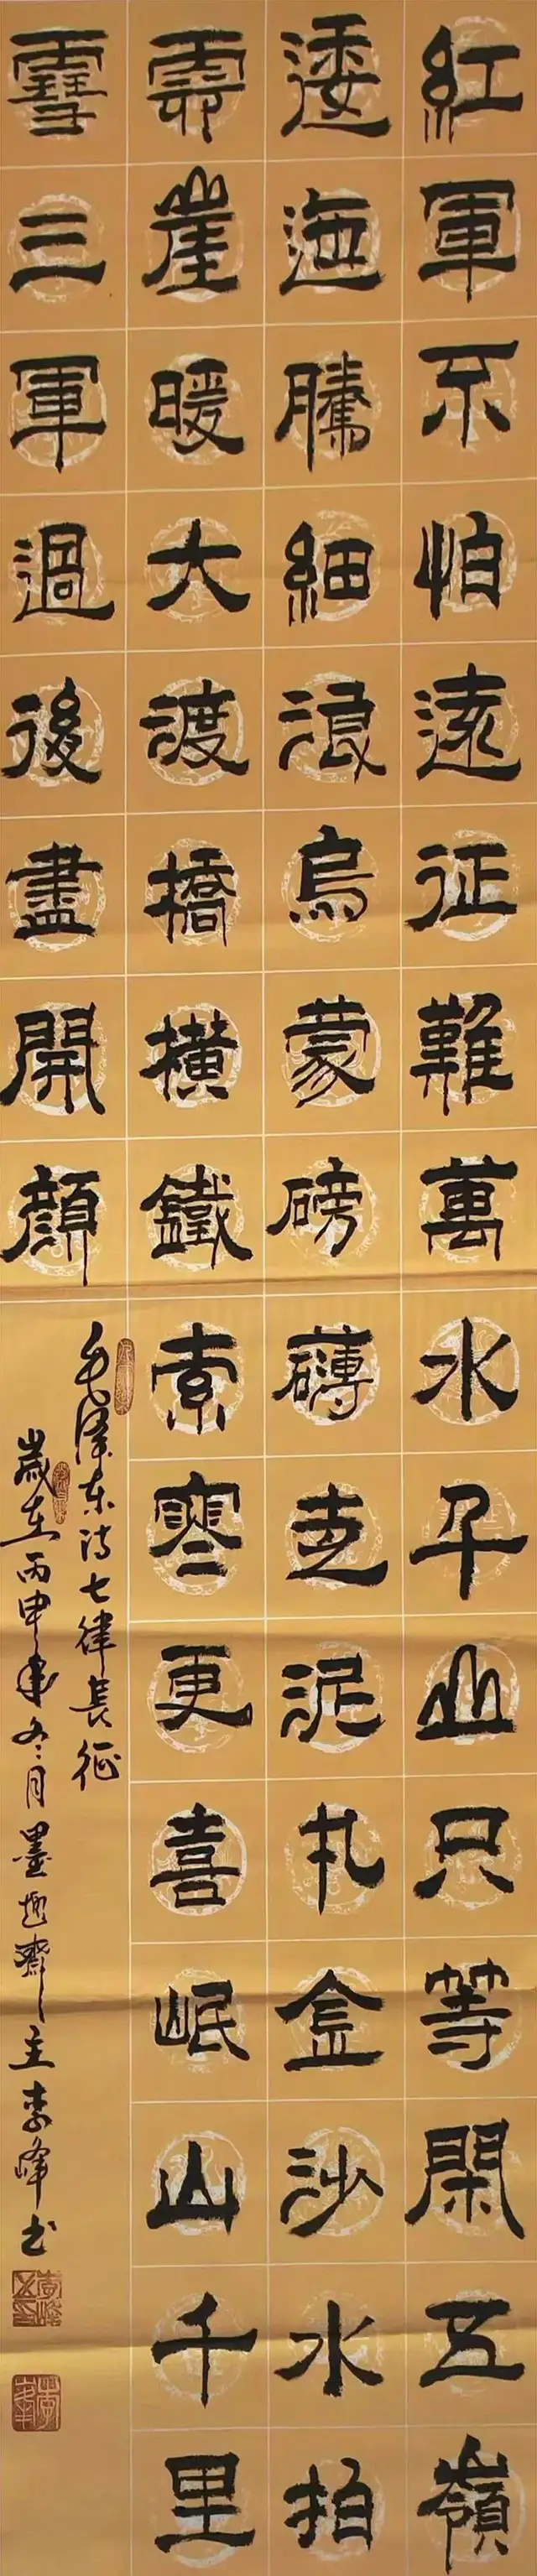 紅軍不怕遠征難萬水千山只等閑五嶺
逶迤騰細浪烏蒙磅礴走泥丸金沙水拍
雲崖暖大渡橋橫鐵索寒更喜岷山千里
雪三軍過後盡開顏
毛澤东诗七律長征
歲在丙申年冬月墨趣齋主李峰书